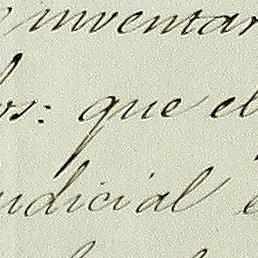 inventar
os: que el
udicial e